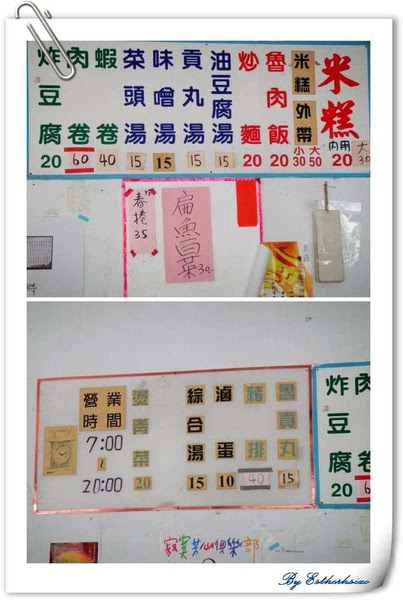 米糕
內用 20 大30
米糕外帶
小30 大50
魯肉飯 20
炒麵 20
油豆腐湯 15
貢丸湯 15
味噌湯 15
菜頭湯 15
蝦卷 40
肉卷 60
炸豆腐 20
扁魚白菜 30
春捲 35
炸豆腐 20
肉卷 6
魯貢丸 15
豬排 40
滷蛋 10
綜合湯 15
燙青菜 20
營業時間
7:00
~
20:00
寂寞芳心俱樂部
By Estherhsiao